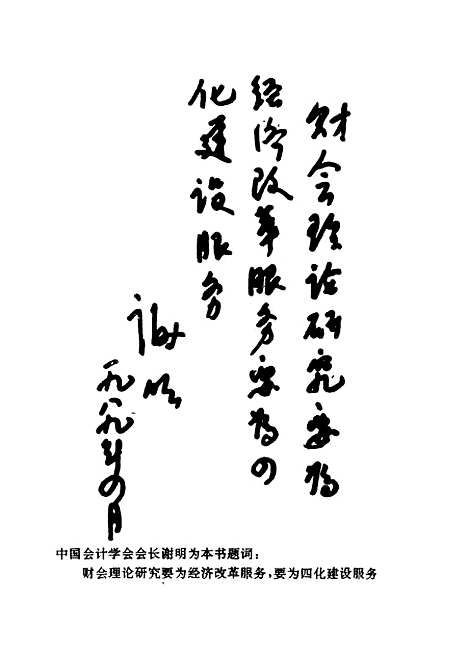 财会理论研究要为
经济改革服务要为四
化建设服务
谢明
一九八九年四月
中国会计学会会长谢明为本书题词：
财会理论研究要为经济改革服务，要为四化建设服务